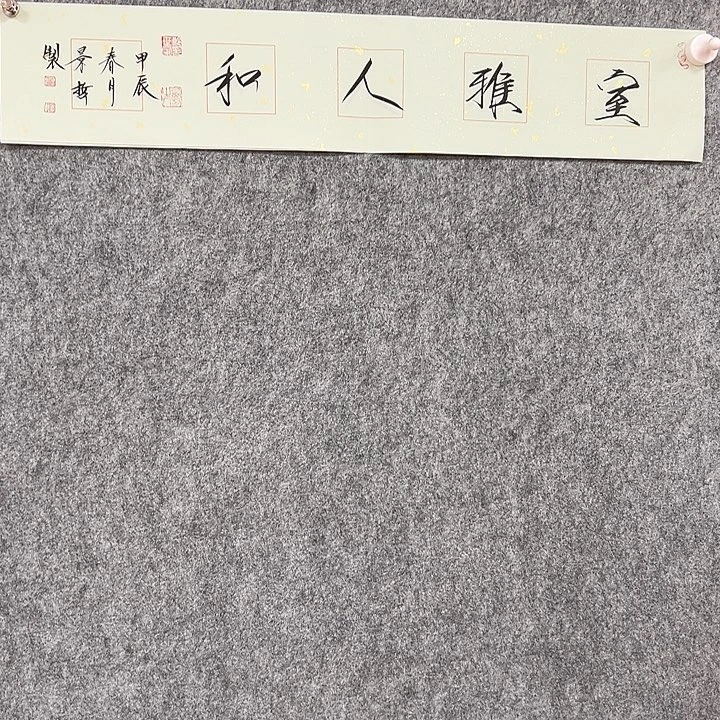 室雅人和
甲辰
春月
景哲
製